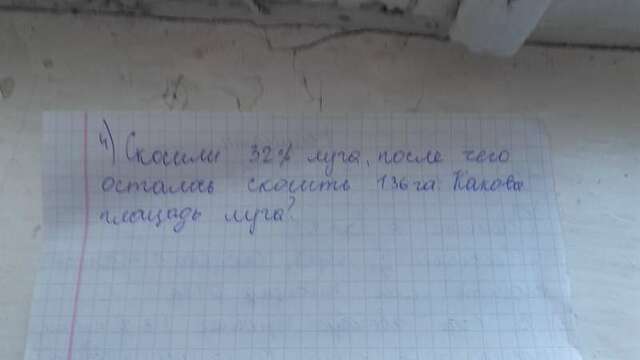 4) Скосили 32% луга, после чего
осталось скосить 136 га. Какова
площадь луга?